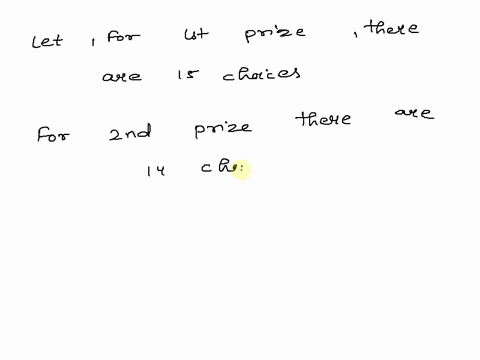 Let , For 1st prize , there
are 15 choices
For 2nd prize there are
14 cho